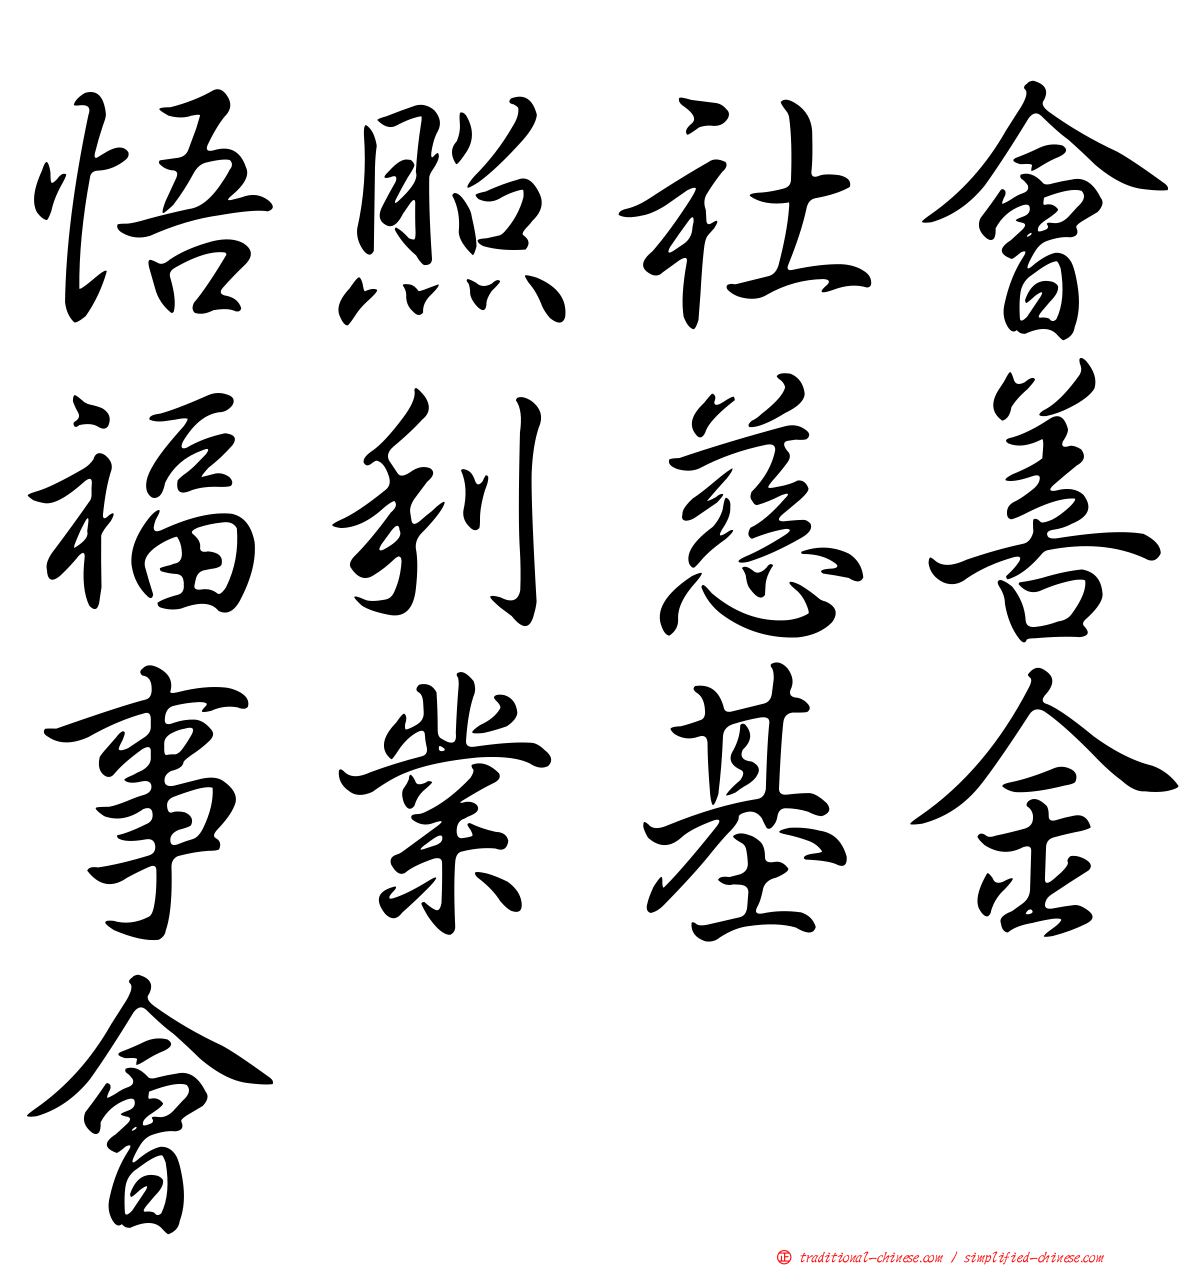 悟照社會
福利慈善
事業基金
會
正 traditional-chinese.com / simplified-chinese.com